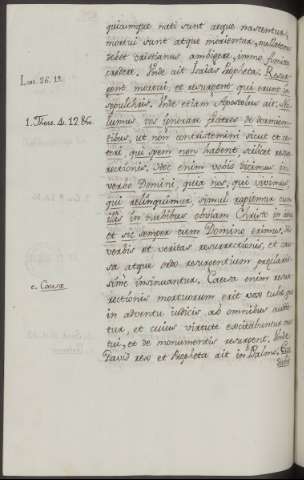 quicumque nati sunt atque nascentur,
mortui sunt atque morientur, nullatenus
debet cristianus ambigere, immo firmiter
credere. Unde ait Isaias Propheta: Resur-
Isai. 26. 19.
gent mortui, et resurgent qui erunt in
sepulchris. Unde etiam Apostolus ait: No-
1. Thess. 4. 12. &c.
lumus vos ignorare fratres de dormien-
tibus, ut non contristemini sicut et cæ-
teri qui spem non habent scilicet resur-
rectionis. Hoc enim vobis dicimus in
verbo Domini, quia nos, qui vivimus,
qui relinquimur, simul rapiemur cum
illis in nubibus obviam Christo in aera
et sic semper cum Domino erimus. His
verbis et veritas resurrectionis, et cau-
sa atque ordo resurgentium præclaris-
sime insinuantur. Causa enim resur-
c. Causa
rectionis mortuorum erit vox tubæ quæ
in adventu iudicis ab omnibus audie-
tur, et cuius virtute excitabuntur mor-
tui, et de monumentis resurgent. Unde
David rex et Propheta ait in Psalmo: